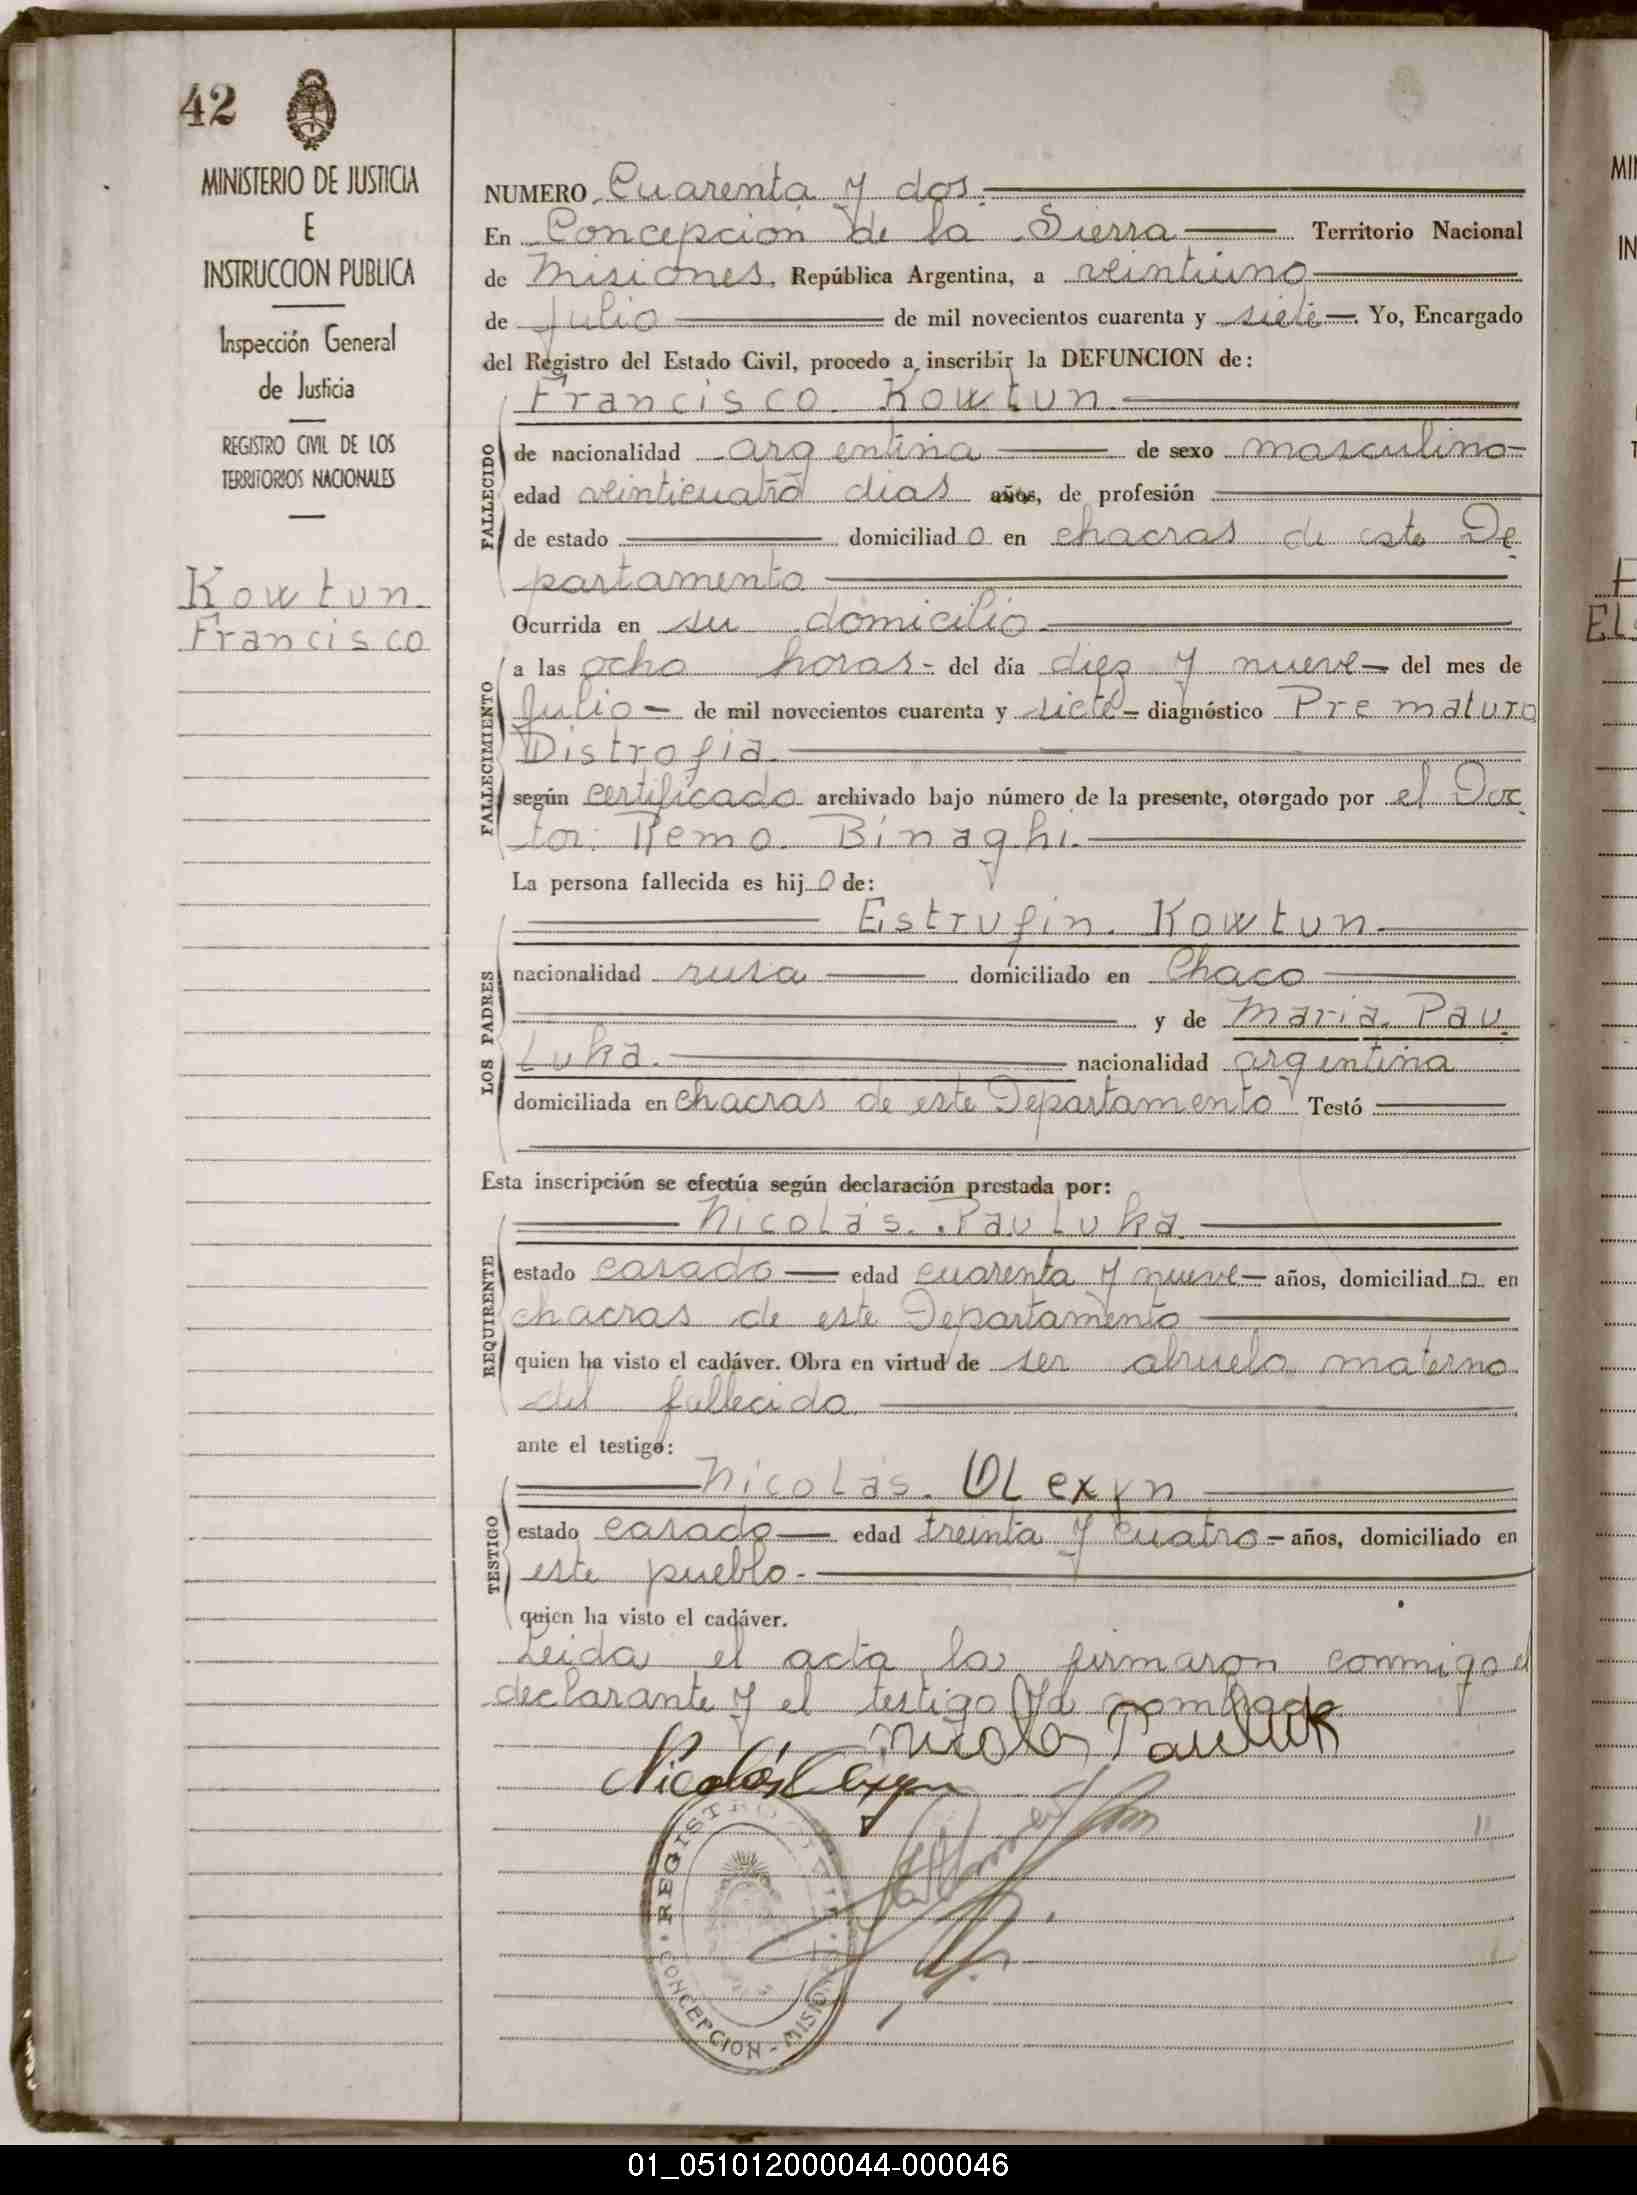 42
MINISTERIO DE JUSTICIA
E
INSTRUCCION PUBLICA
Inspección General
de Justicia
REGISTRO CIVIL DE LOS
TERRITORIOS NACIONALES
Kowtun.
Francisco
NUMERO Cuarenta y dos.
En Concepción de la Sierra Territorio Nacional
de Misiones, República Argentina, a veintiuno
de Julio de mil novecientos cuarenta y siete. Yo, Encargado
del Registro del Estado Civil, procedo a inscribir la DEFUNCION de:
Francisco. Kowtun.
FALLECIDO
de nacionalidad argentina de sexo masculino
edad veinticuatro dias años, de profesión
de estado domiciliado en chacras de este De
partamento
Ocurrida en su domicilio
FALLECIMIENTO
a las ocho horas del día diez y nueve del mes de
Julio de mil novecientos cuarenta y siete diagnóstico Prematuro
Distrofia.
según certificado archivado bajo número de la presente, otorgado por el Doc
tor: Remo. Binaghi.
La persona fallecida es hijo de:
LOS PADRES
Estrufin. Kowtun.
nacionalidad rusa domiciliado en Chaco
y de Maria. Pau.
Luka. nacionalidad argentina
domiciliada en chacras de este Departamento Testó
Esta inscripción se efectúa según declaración prestada por:
REQUIRENTE
Nicolás. Pauluka.
estado casado edad cuarenta y nueve años, domiciliado en
chacras de este Departamento
quien ha visto el cadáver. Obra en virtud de ser abuelo materno
del fallecido.
ante el testigo:
TESTIGO
Nicolás. OLexyn
estado casado edad treinta y cuatro años, domiciliado en
este pueblo.
quien ha visto el cadáver.
Leida el acta la firmaron conmigo el
declarante y el testigo ya nombrado
Nicolas Pauluk
Nicolás Olexyn
REGISTRO CIVIL
CONCEPCION - MISIONES
01_051012000044-000046